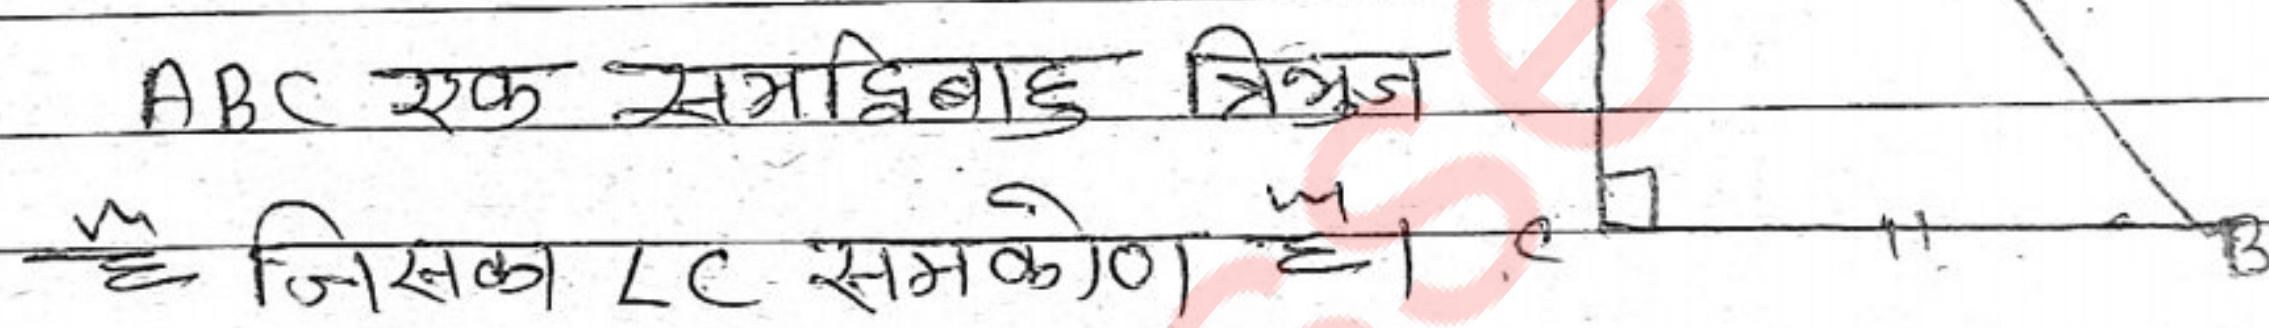 ABC एक समद्विबाहु त्रिभुज
है जिसका ∠C समकोण है। C B